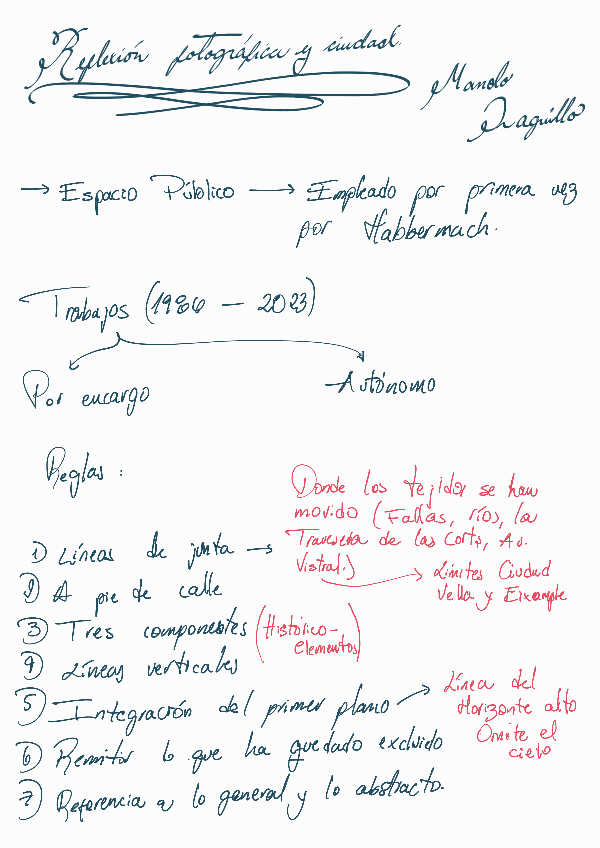 Reflexión fotográfica y ciudad.
Manolo
Laguillo
→ Espacio Público → Empleado por primera vez
por Habbermach.
Trabajos (1986 — 2023)
Por encargo
Autónomo
Reglas :
Donde los tejidos se han
movido (Fallas, ríos, la
Travesera de las Corts, Av.
Vistral.)
→ Límites Ciudad
Vella y Eixample
1) Líneas de junta →
2) A pie de calle
3) Tres componentes (Histórico-
elementos)
4) Líneas verticales
5) Integración del primer plano →
Línea del
Horizonte alto
Omite el
cielo
6) Remitir lo que ha quedado excluido
7) Referencia a lo general y lo abstracto.